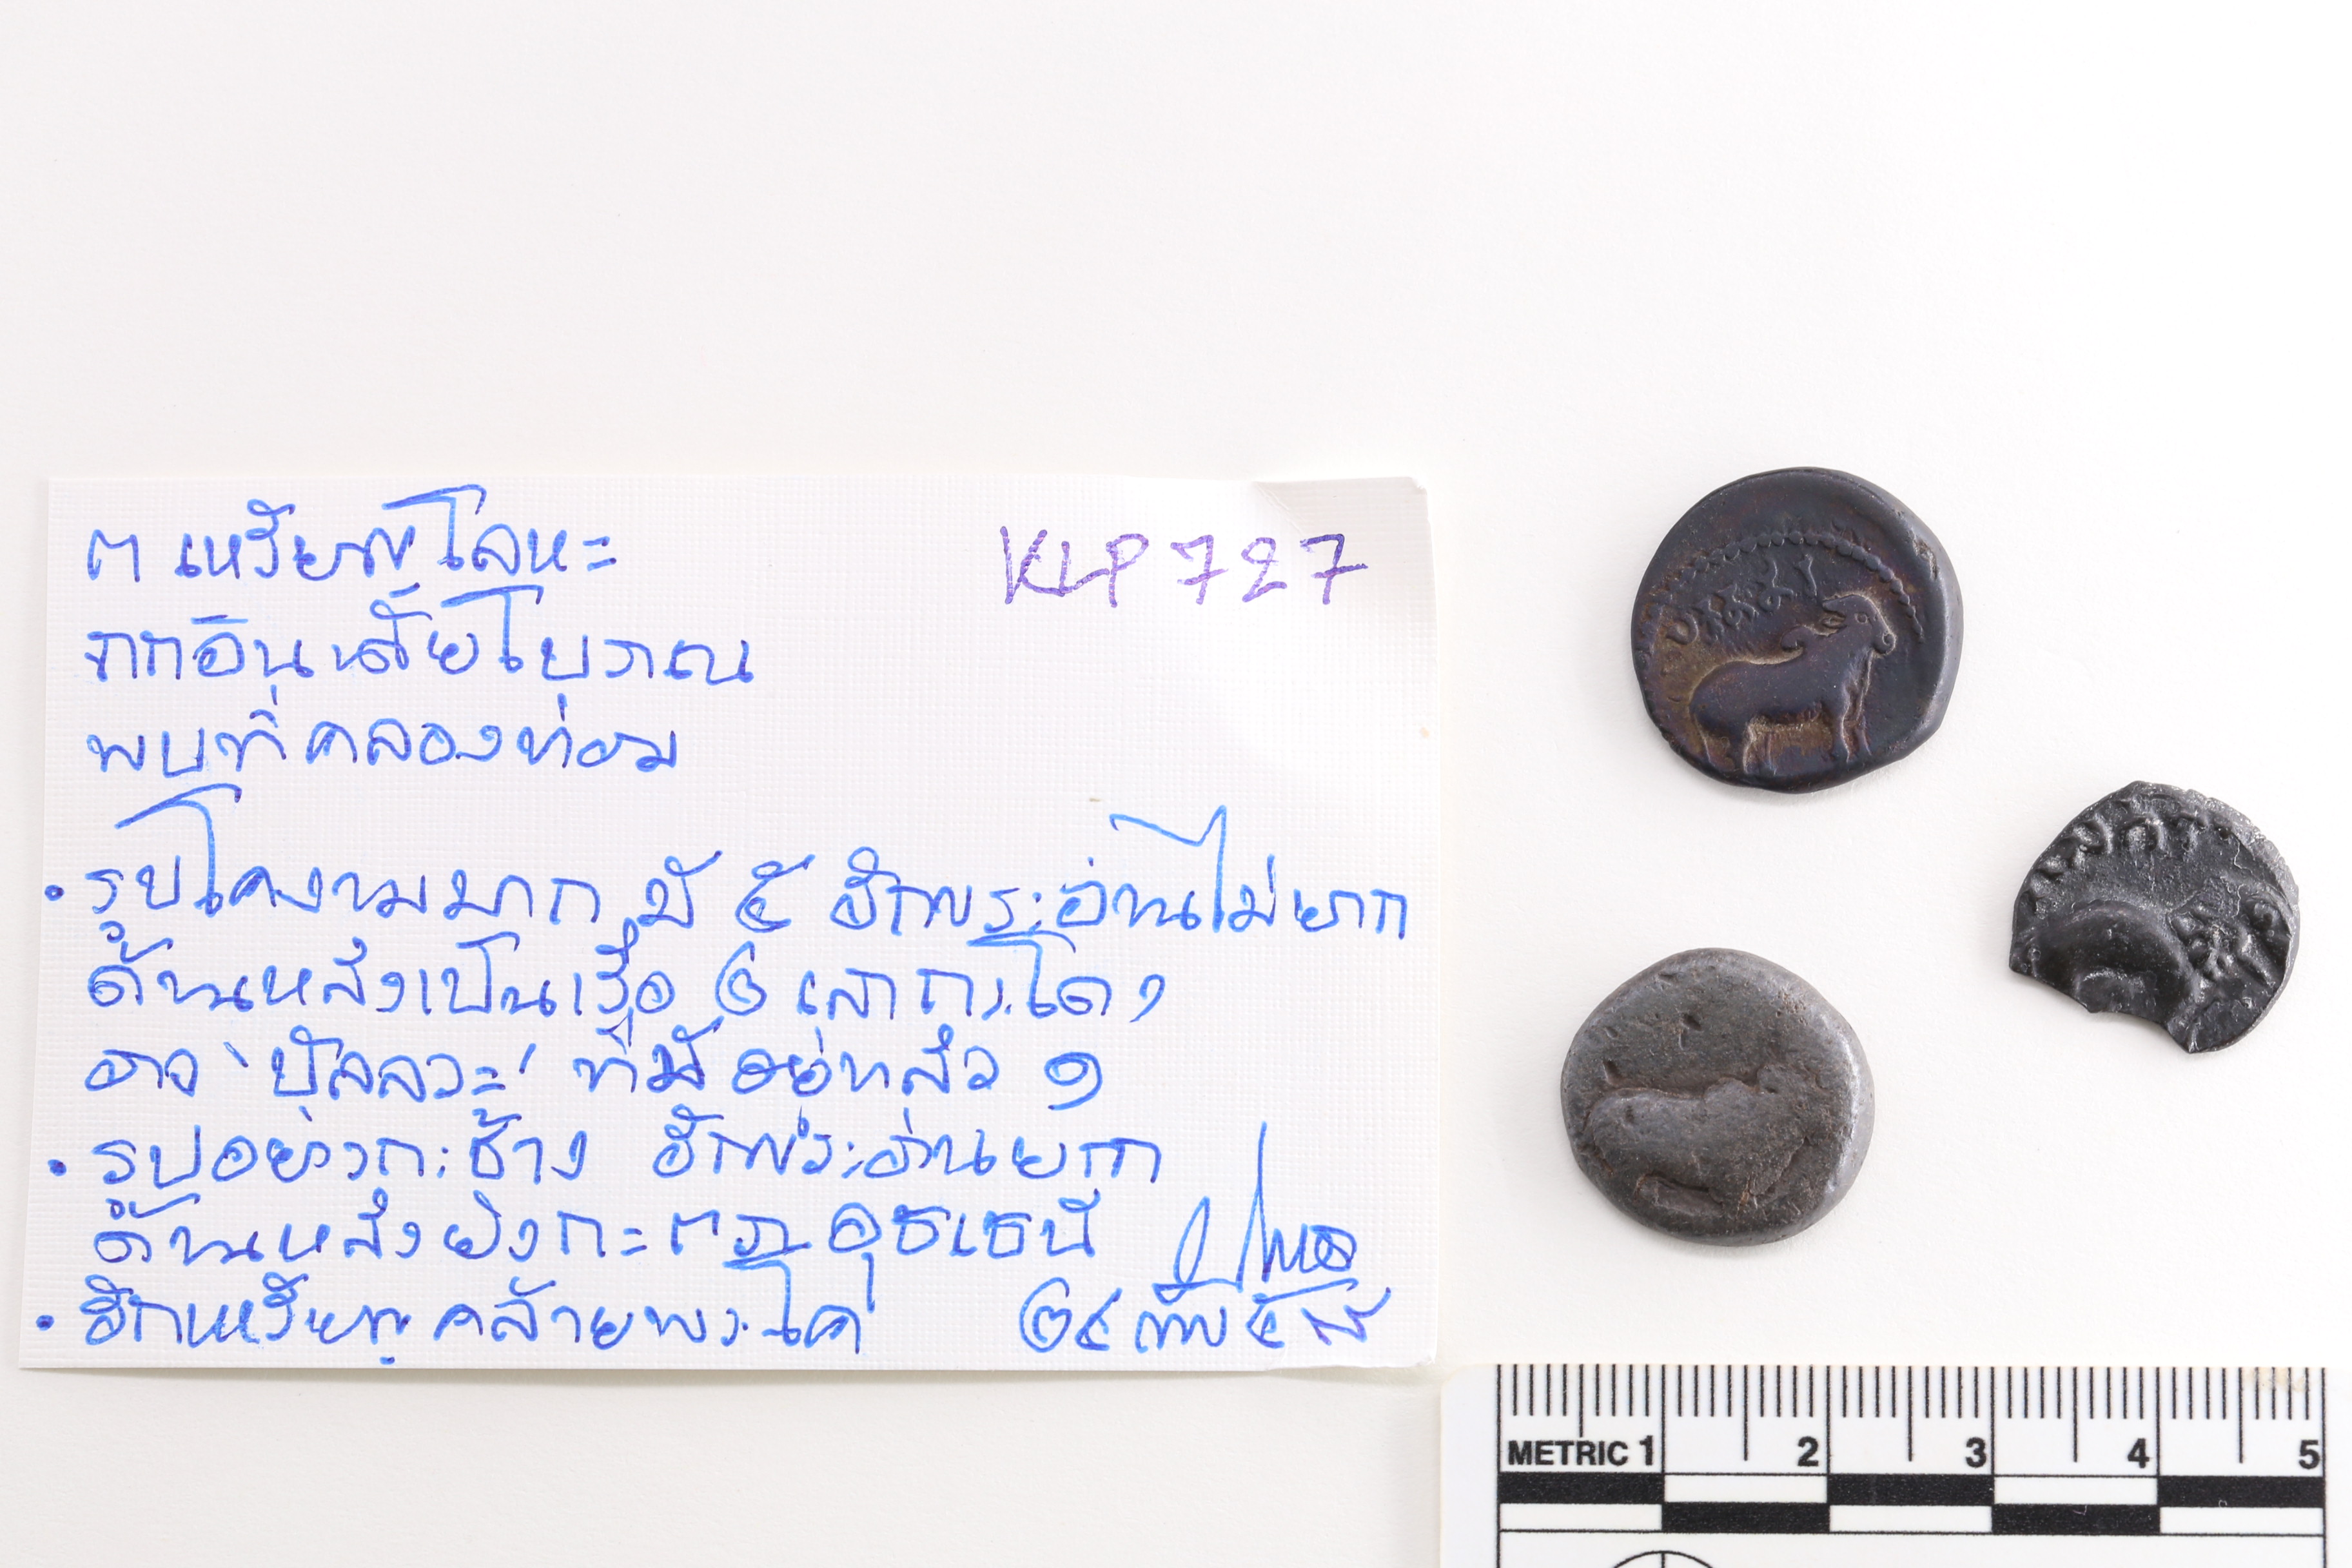 ๓ เหรียญโลหะ
จากอินเดียโบราณ
พบที่คลองท่อม
KLP 727
• รูปโคงามมาก มี ๕ อักขระอ่านไม่ยาก
ด้านหลังเป็นเรือ ๒ เสากระโดง
อาจ 'ปัลลวะ' ที่มีอยู่หลัง ๑
• รูปอย่างกะช้าง อักขระอ่านยาก
ด้านหลังยังกะตรา อุชเชนี
• อีกเหรียญ คล้ายพระโค
๒๔ กพ ๕๘
METRIC 1 2 3 4 5